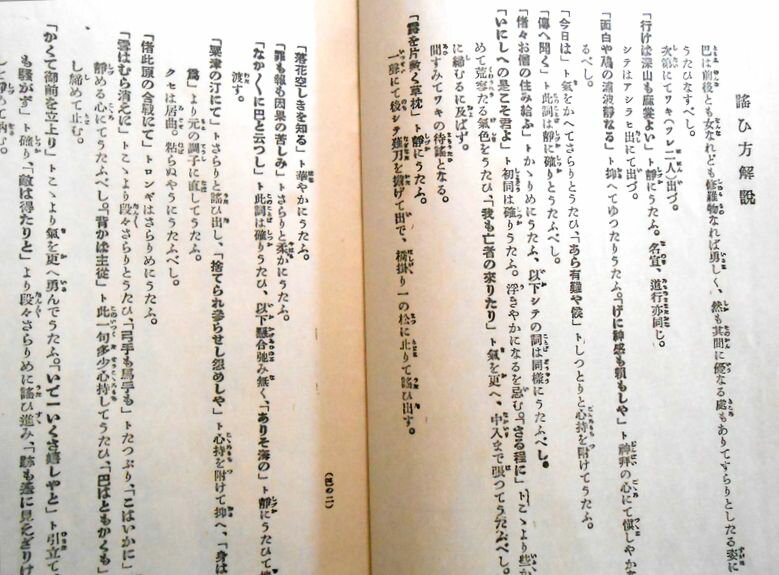 謠ひ方解説
巴は前後とも女なれども修羅物なれば勇しく、然も其間に優なる處もありてすらりとしたる姿に
うたひなすべし。
次第にてワキ(ツレ二人)出づ。
「行けば深山も麻裳よい」ト靜にうたふ。名宣、道行亦同じ。
シテはアシラヒ出にて出づ。
「面白や鳰の浦波靜なる」ト抑へてゆつたりうたふ。「げに神感も頼もしや」ト神拜の心にて愼しやかに
るべし。
「今日は」ト氣をかへてさらりとうたひ、「あら有難や候」トしつとりと心持を附けてうたふ。
「傳へ聞く」ト此詞は靜に確りとうたふべし。
「偖々お僧の住み給ふ」トかゝりめにうたふ、以下シテの詞は同樣にうたふべし。
「いにしへの是こそ君よ」ト初同は確りうたふ。浮きやかになるを忌む。「さる程に」トこゝより些か
めて荒寥たる氣色をうたひ、「我も亡者の來りたり」ト氣を更へ、中入まで張つてうたふべし。
に締むるに及ばず。
間すみてワキの待謠となる。
「露を片敷く草枕」ト靜にうたふ。
一聲にて後シテ薙刀を擔げて出で、橋掛り一の松に止りて謠ひ出す。
「落花空しきを知る」ト華やかにうたふ。
「罪も報も因果の苦しみ」トさらりと柔かにうたふ。
「なか〳〵に巴と云つし」ト此詞は確りうたひ、以下懸合弛み無く、「ありそ海の」ト靜にうたひて地
渡す。
「粟津の汀にて」トさらりと謠ひ出し、「捨てられ參らせし怨めしや」ト心持を附けて抑へ、「身は
爲」より元の調子に直してうたふ。
クセは居曲。粘らぬやうにうたふべし。
「偖此原の合戰にて」トロンギはさらりめにうたふ。
「雪はむら消えに」トこゝより段々さらりとうたひ、「弓手も馬手も」トたつぷり、「こはいかに」
靜める心にてうたふべし。「背かば主從」ト此一句多少心持してうたひ、「巴はともかくも」
し締めて止む。
「かくて御前を立上り」トこゝより氣を更へ勇んでうたふ。「いで一いくさ嬉しやと」ト引立て、
も騷がず」ト確り、「敵は得たりと」より段々さらりめに謠ひ進み、「跡も遙に見えざりけ
(巴の二)